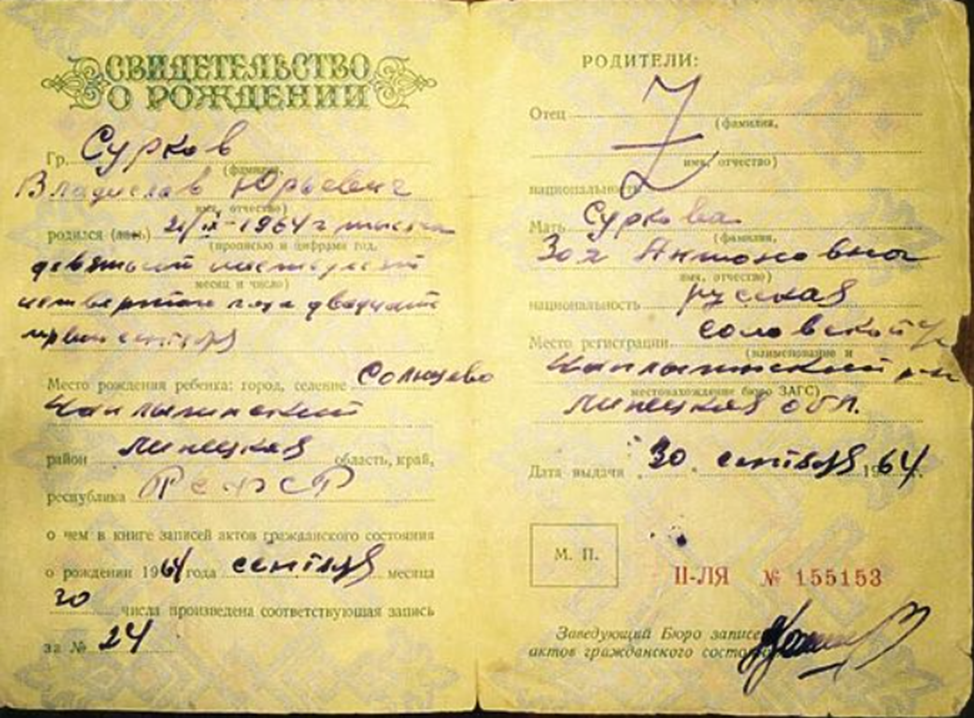 СВИДЕТЕЛЬСТВО
О РОЖДЕНИИ
Гр. Сурков
(фамилия,
Владислав Юрьевич
имя, отчество)
родился (лась) 21/IX-1964 г тысяча
(прописью и цифрами год,
девятьсот шестьдесят
месяц и число)
четвертого года двадцать
первого сентября
Место рождения ребенка: город, селение Солнцево
Чаплыгинский
район Липецкая область, край,
республика РСФСР
о чем в книге записей актов гражданского состояния
о рождении 1964 года сентября месяца
30 числа произведена соответствующая запись
за № 24
РОДИТЕЛИ:
Отец
(фамилия,
имя, отчество)
национальность
Мать Суркова
(фамилия,
Зоя Антоновна
имя, отчество)
национальность русская
Место регистрации
(наименование и
Чаплыгинский р-н
местонахождение бюро ЗАГС)
Липецкая обл.
Дата выдачи „30" сентября 1964.
М. П.
II-ЛЯ № 155153
Заведующий Бюро записей
актов гражданского состояния